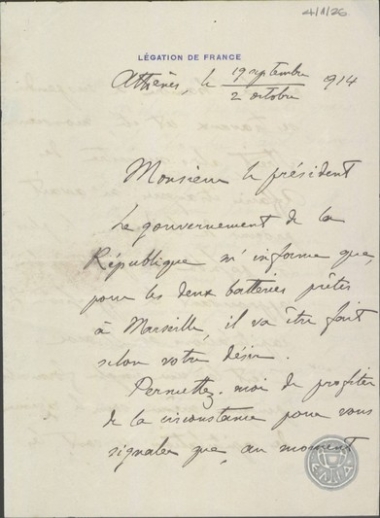 4/1/26
LÉGATION DE FRANCE
Athènes, le 19 septembre 914
2 octobre
Monsieur le président
Le gouvernement de la
République m'informe que,
pour les deux batteries prêtes
à Marseille, il va être fait
selon votre désir.
Permettez-moi de profiter
de la circonstance pour vous
signaler que, au moment